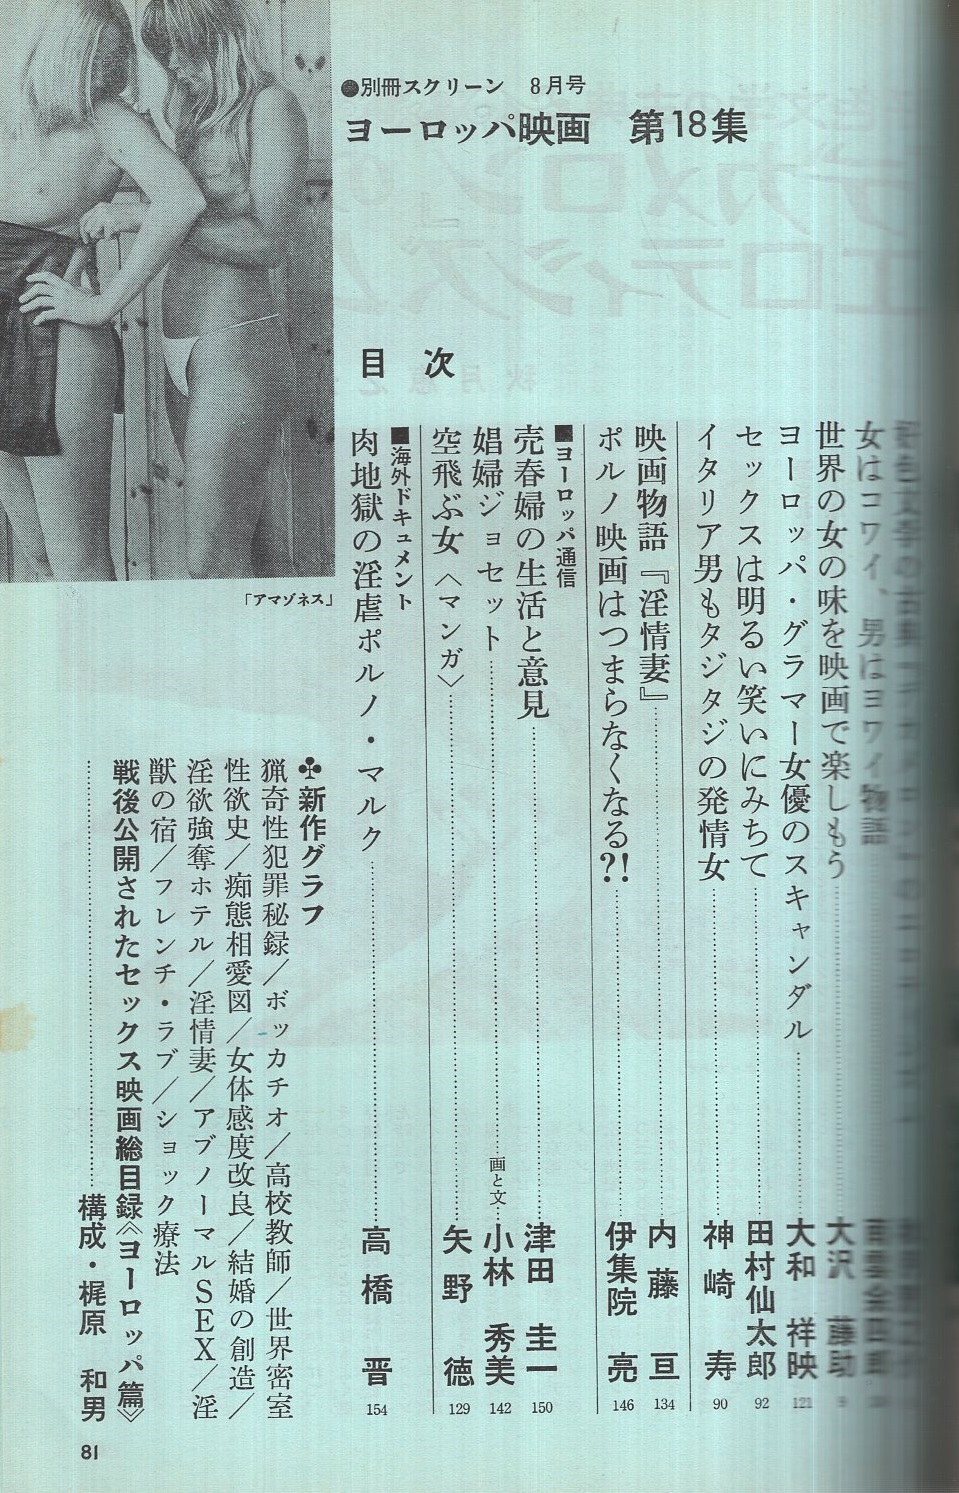 ●別冊スクリーン 8月号
ヨーロッパ映画 第18集
目次
女はコワイ、男はヨワイ物語
世界の女の味を映画で楽しもう 大沢 藤助
ヨーロッパ・グラマー女優のスキャンダル 大和 祥映 121
セックスは明るい笑いにみちて 田村仙太郎 92
イタリア男もタジタジの発情女 神崎 寿 90
映画物語『淫情妻』 内藤 亘 134
ポルノ映画はつまらなくなる?! 伊集院 亮 146
■ヨーロッパ通信
売春婦の生活と意見 津田 圭一 150
娼婦ジョセット 画と文・小林 秀美 142
空飛ぶ女〈マンガ〉 矢野 徳 129
■海外ドキュメント
肉地獄の淫虐ポルノ・マルク 高橋 晋 154
♣新作グラフ
猟奇性犯罪秘録/ボッカチオ/高校教師/世界密室
性欲史/痴態相愛図/女体感度改良/結婚の創造/
淫欲強奪ホテル/淫情妻/アブノーマルSEX/淫
獣の宿/フレンチ・ラブ/ショック療法
戦後公開されたセックス映画総目録《ヨーロッパ篇》
構成・梶原 和男
「アマゾネス」
81